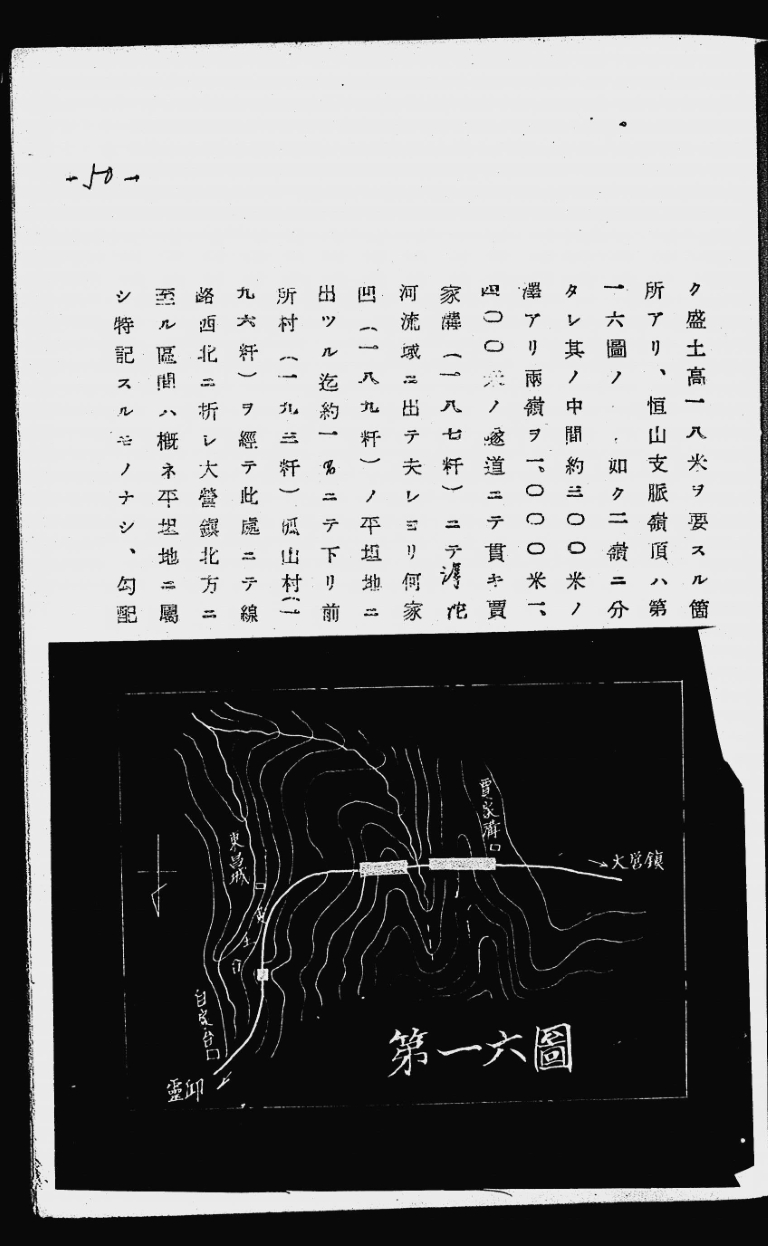 -50-
ク盛土高一八米ヲ要スル箇
所アリ、恒山支脈嶺頂ハ第
一六圖ノ如ク二嶺ニ分
タレ其ノ中間約三〇〇米ノ
澤アリ兩嶺ヲ一、〇〇〇米一、
四〇〇米ノ隧道ニテ貫キ賈
家溝(一八七粁)ニテ滹沱
河流域ニ出テ夫レヨリ何家
凹(一八九粁)ノ平坦地ニ
出ツル迄約一%ニテ下リ前
所村(一九三粁)孤山村(一
九六粁)ヲ經テ此處ニテ線
路西北ニ折レ大營鎭北方ニ
至ル區間ハ概ネ平坦地ニ屬
シ特記スルモノナシ、勾配
賈家溝
大営鎮
東昌城
自成台
靈邱
第一六圖